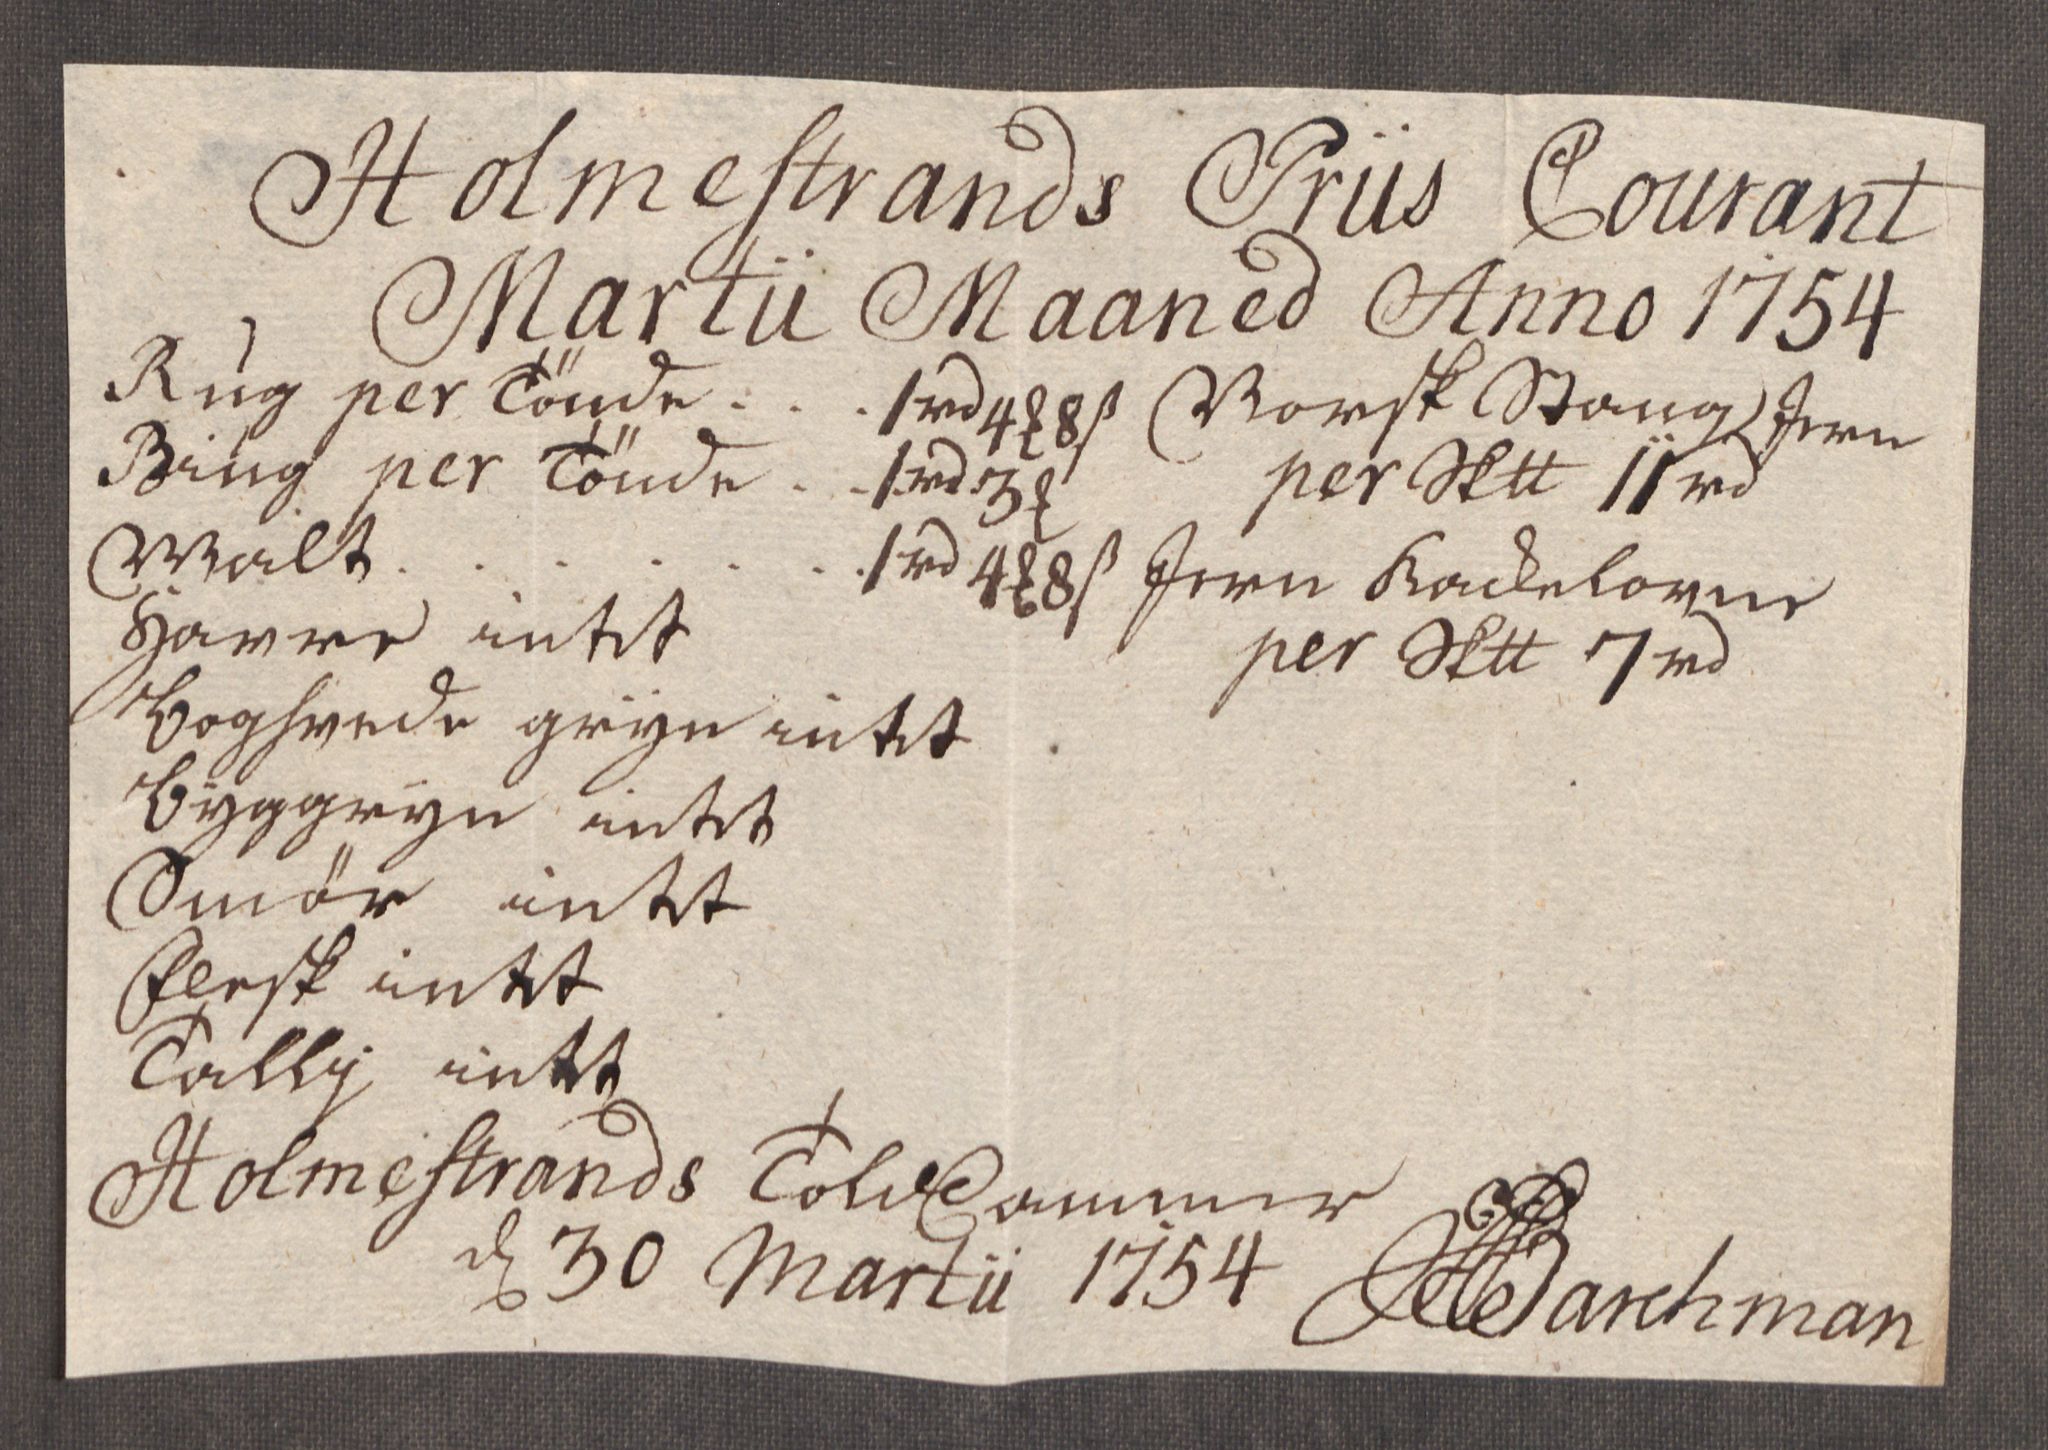 Holmestrands Priis Courant
Martii Maaned Anno 1754
Rug per Tönde . . . 1 rd 4 ℔ 8 ß
Biug per Tönde . . 1 rd 3 ℔
Malt . . . . . . . 1 rd 4 ℔ 8 ß
Havre intet
Boghvede gryn intet
Byggryn intet
Smör intet
Flesk intet
Tallig intet
Norsk Stang Jern
per Sktt 11 rd
Jern Kackelovne
per Sktt 7 rd
Holmestrands Told Cammer
d 30 Martii 1754
Barchman